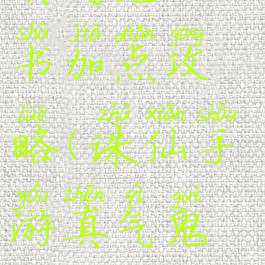 shū jiā diǎn gōng
书加点攻
lüè zhū xiān shǒu
略(诛仙手
yóu zhēn qì guǐ
游真气鬼